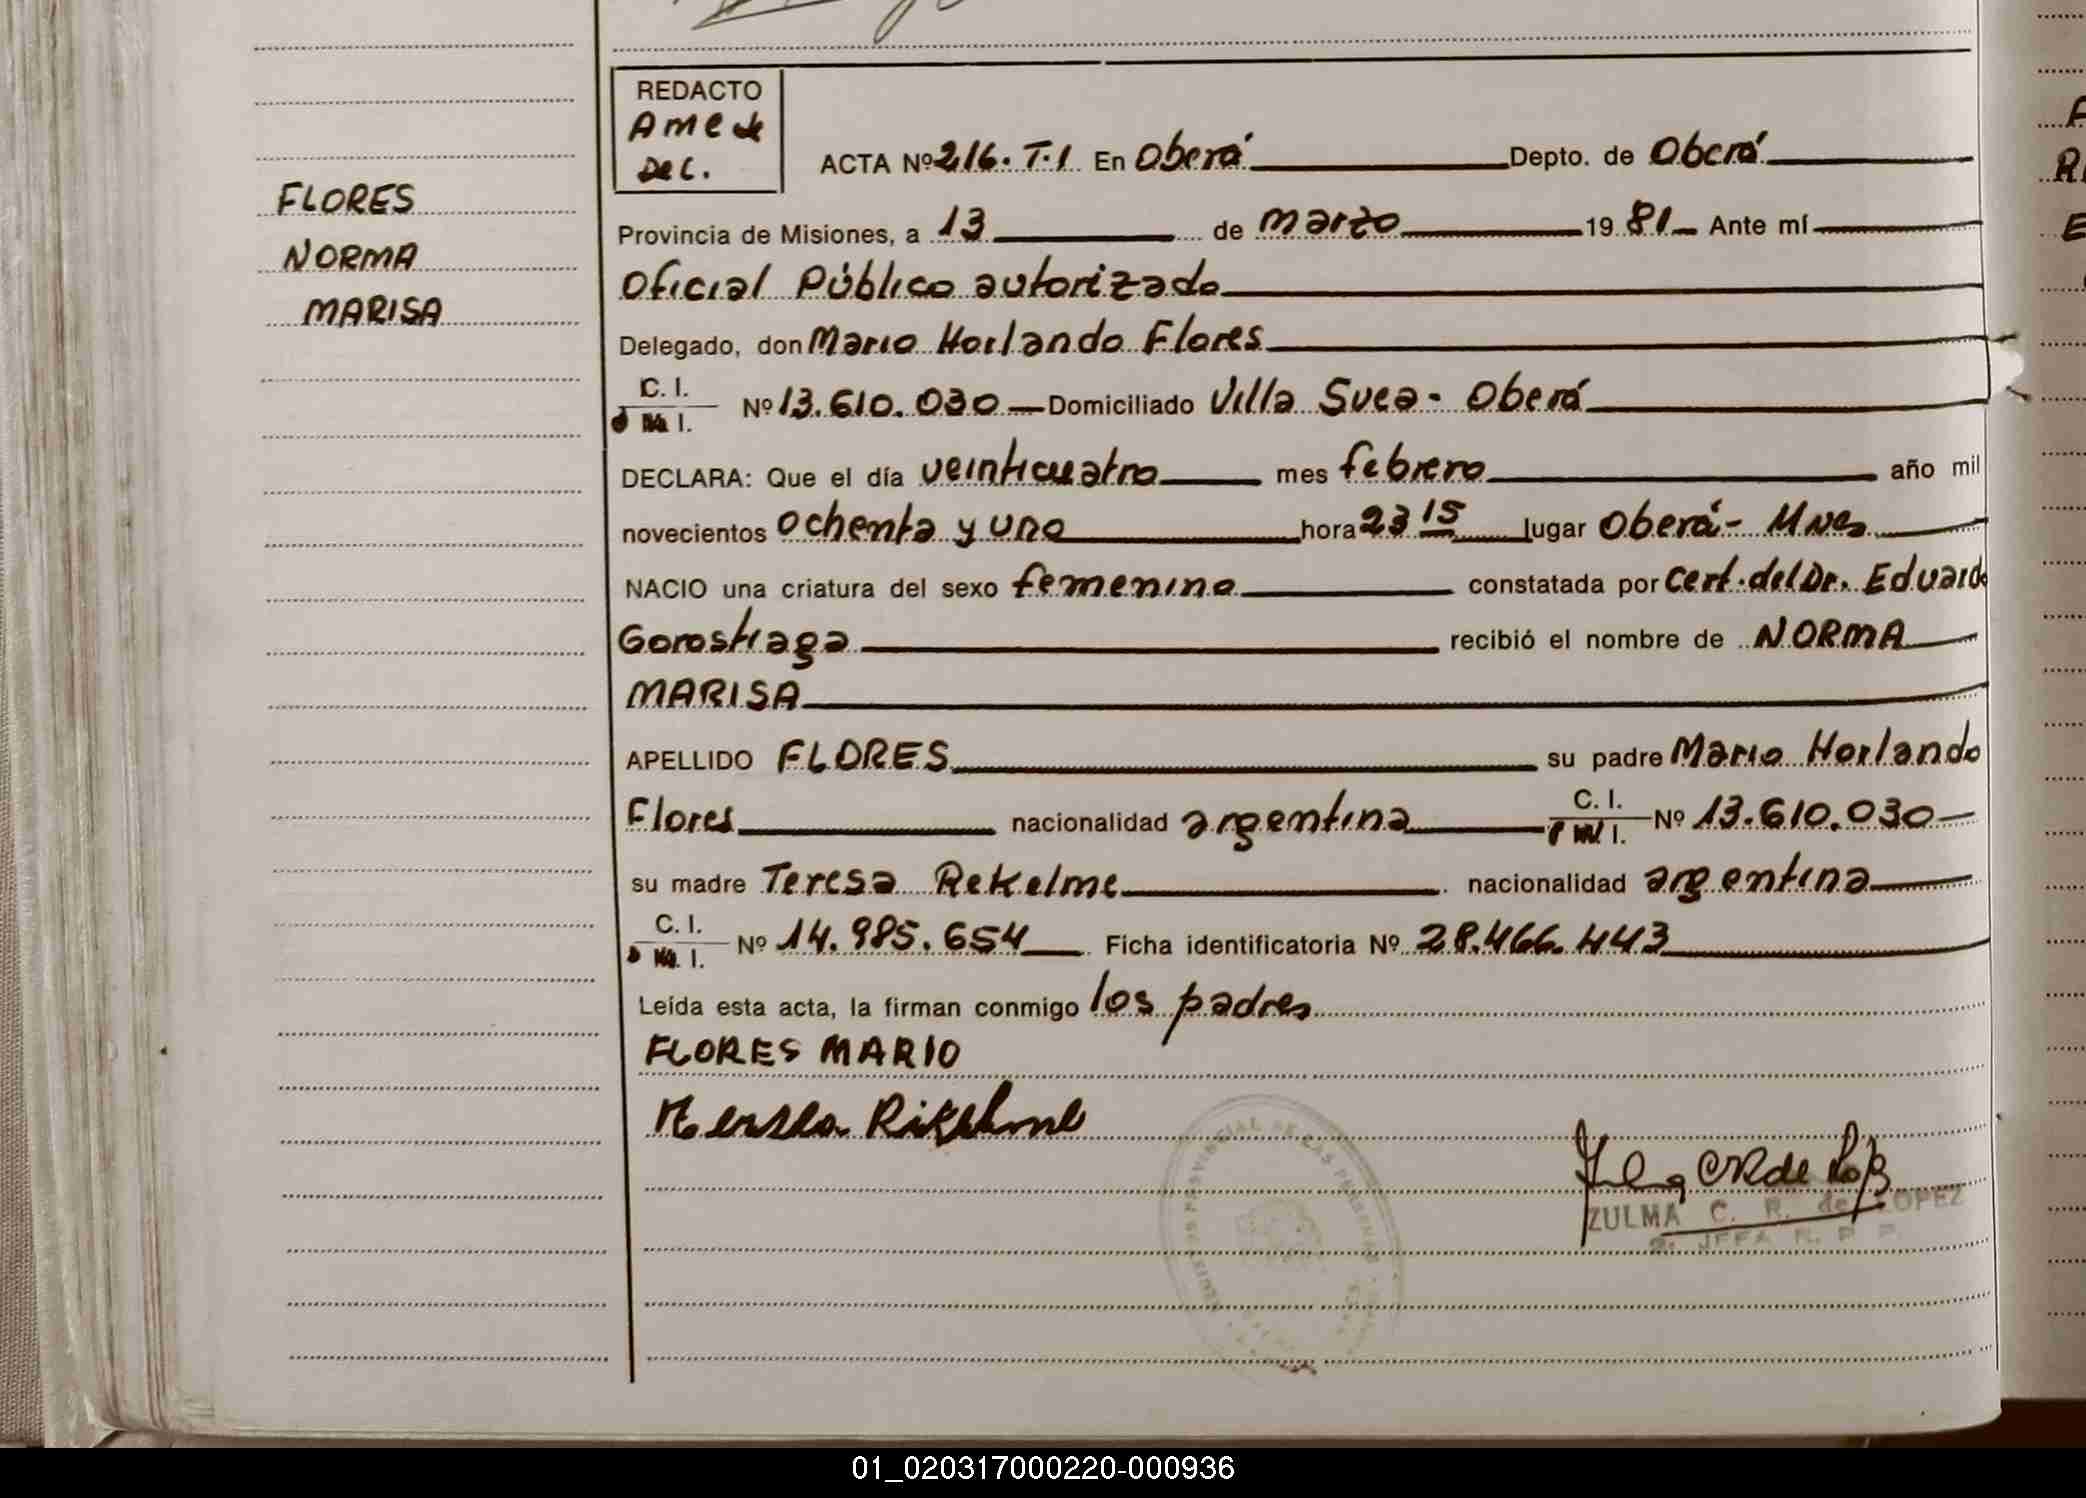 REDACTO
Ame de
Dec.
ACTA Nº 216. T.1 En Oberá Depto. de Oberá
FLORES
NORMA
MARISA
Provincia de Misiones, a 13 de marzo 19 81 Ante mí
Oficial Público autorizado
Delegado, don Mario Horlando Flores
C. I. Nº 13.610.030 Domiciliado Villa Svea - Oberá
DECLARA: Que el día veinticuatro mes febrero año mil
novecientos ochenta y uno hora 23 15 lugar Oberá - Mnes
NACIO una criatura del sexo femenino constatada por Cert. del Dr. Eduardo
Gorostiaga recibió el nombre de NORMA
MARISA
APELLIDO FLORES su padre Mario Horlando
Flores nacionalidad argentina C. I. Nº 13.610.030
su madre Teresa Rekelme nacionalidad argentina
C. I. Nº 14.985.654 Ficha identificatoria Nº 28.466.443
Leída esta acta, la firman conmigo los padres
FLORES MARIO
ZULMA C. R. de LOPEZ
01_020317000220-000936